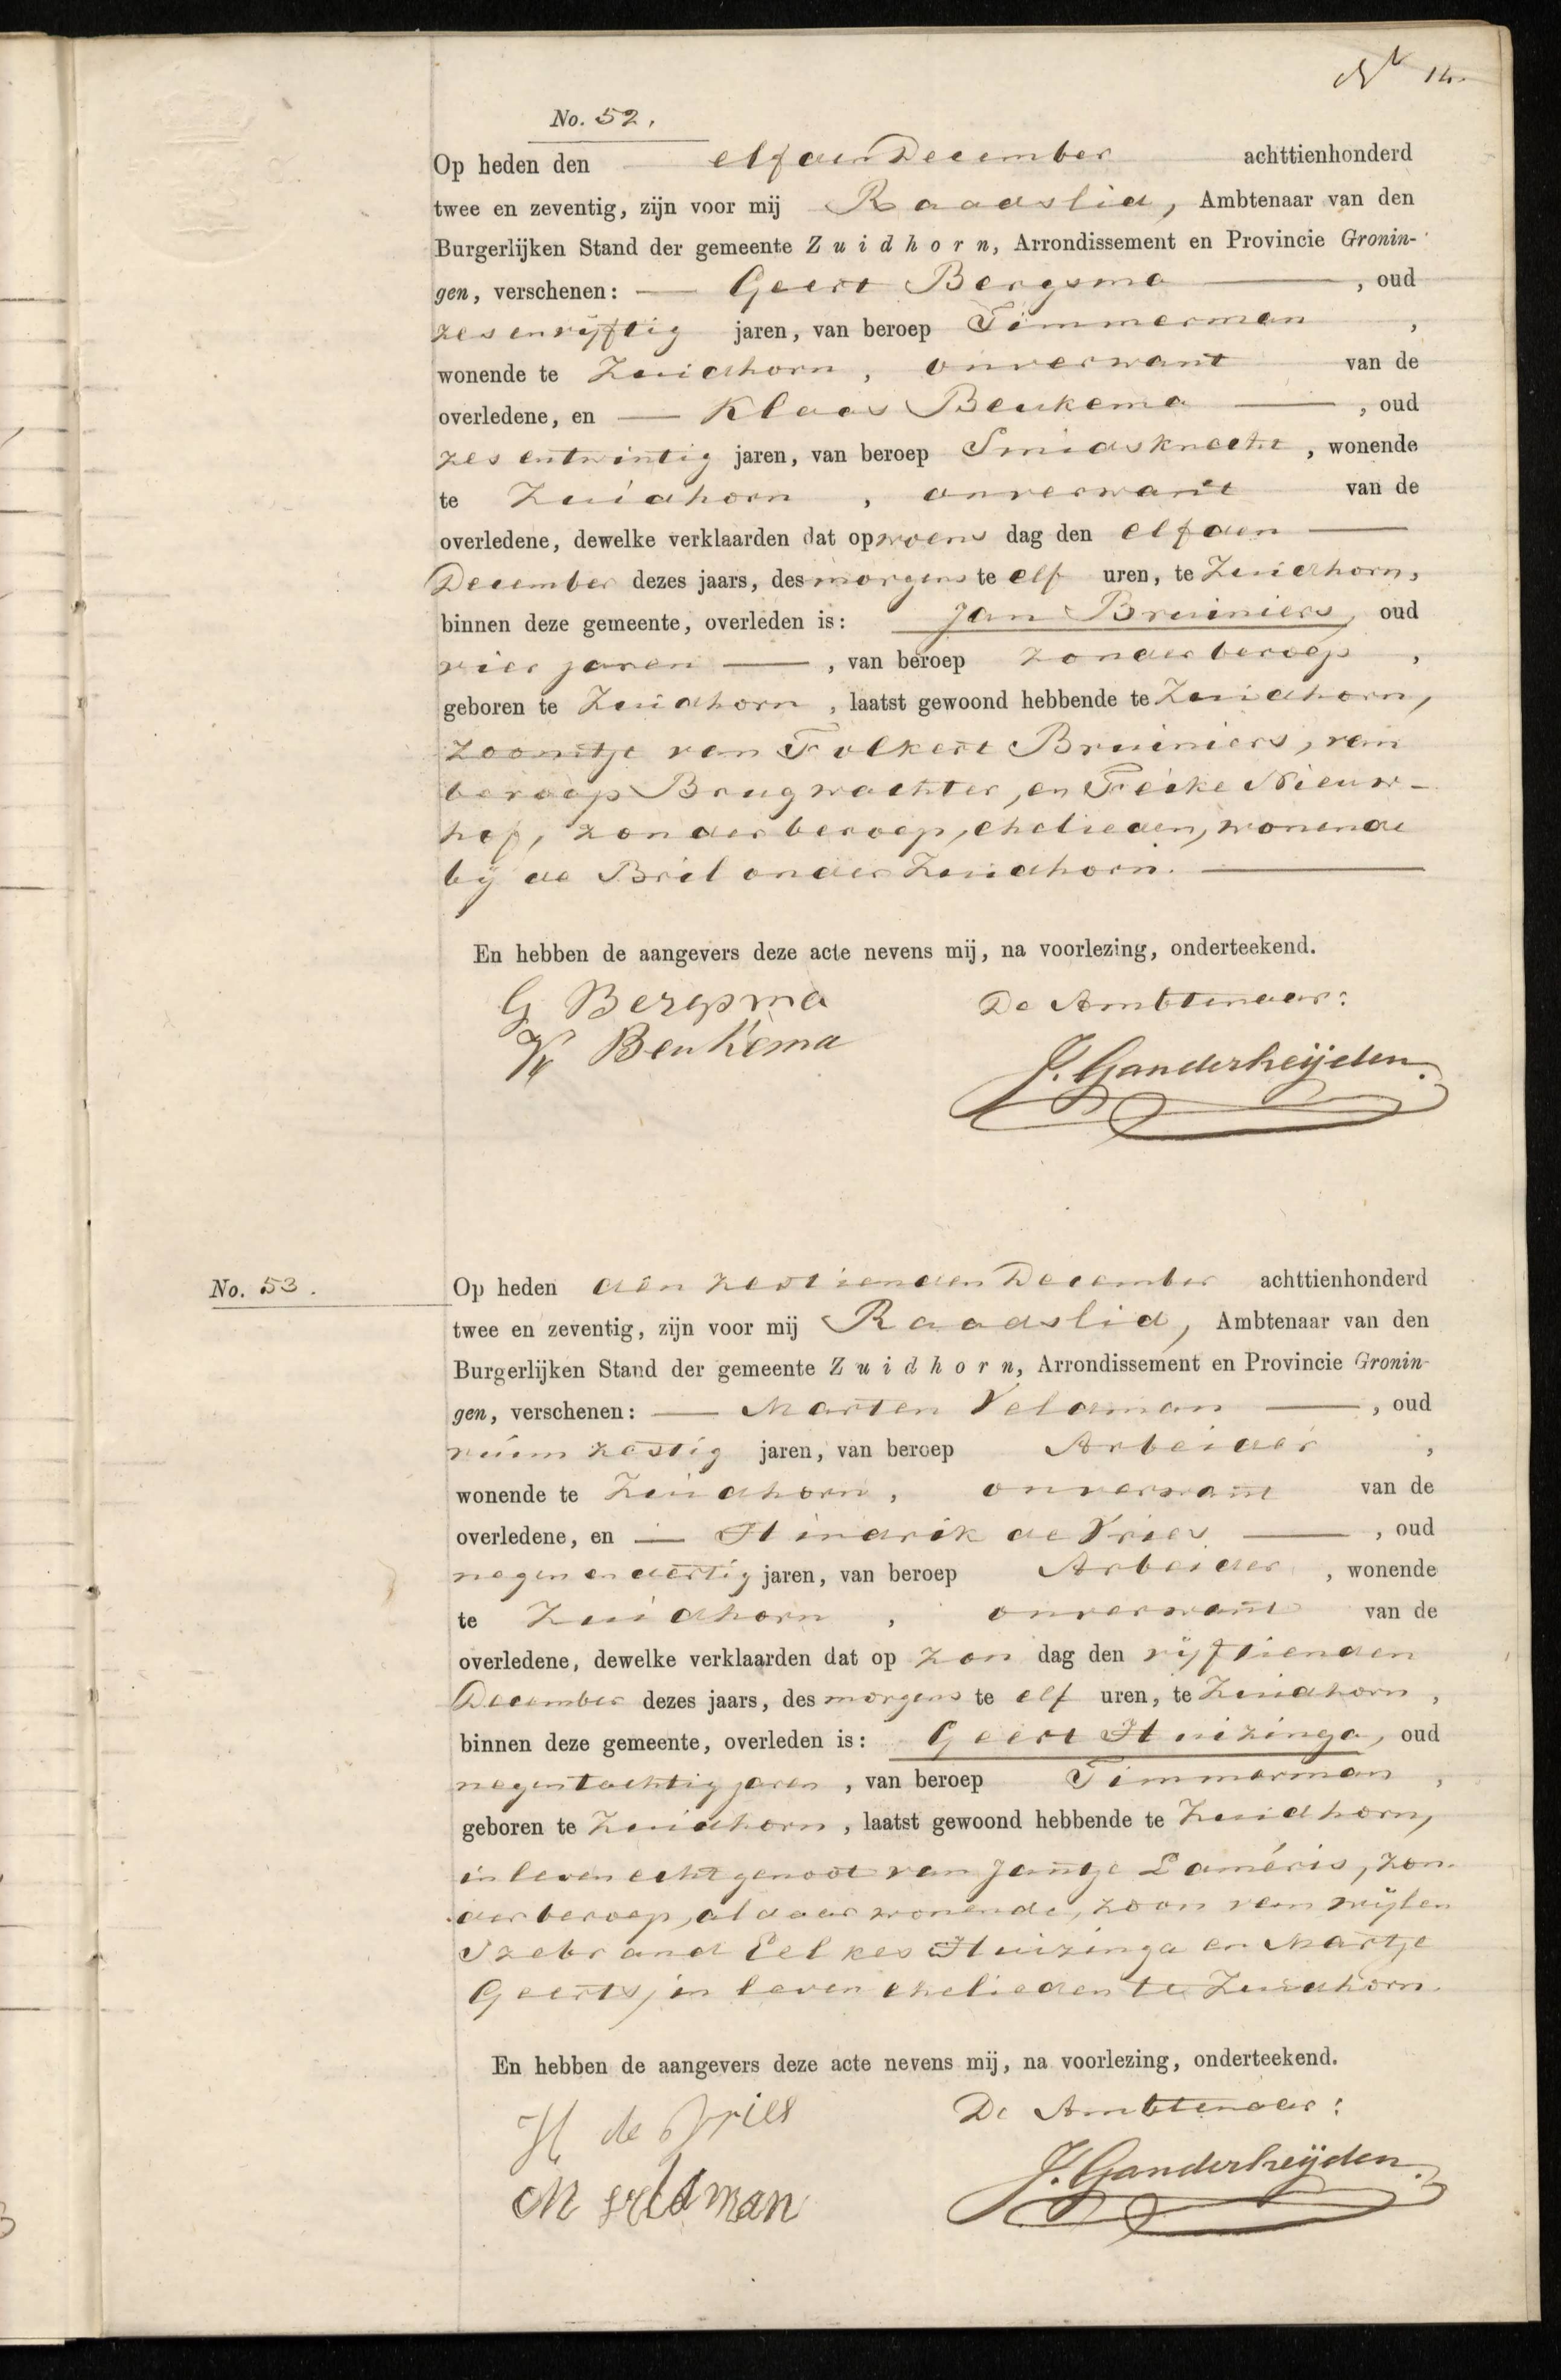 No 14.
No. 52.
Op heden den elfden December achttienhonderd
twee en zeventig, zijn voor mij Raadslid, Ambtenaar van den
Burgerlijken Stand der gemeente Zuidhorn, Arrondissement en Provincie Gronin-
gen, verschenen: — Geert Bergsma —, oud
zes en vijftig jaren, van beroep Timmerman,
wonende te Zuidhorn, onverwant van de
overledene, en — Klaas Beukema —, oud
zes entwintig jaren, van beroep Smidsknecht, wonende
te Zuidhorn, onverwant van de
overledene, dewelke verklaarden dat op woens dag den elfden —
December dezes jaars, des morgens te elf uren, te Zuidhorn,
binnen deze gemeente, overleden is: Jan Bruiniers, oud
vier jaren —, van beroep zonder beroep,
geboren te Zuidhorn, laatst gewoond hebbende te Zuidhorn,
zoontje van Folkert Bruiniers, van
beroep Brugwachter, en Feike Nieuw-
hof, zonder beroep, echelieden, wonende
bij de Bril onder Zuidhorn. —
En hebben de aangevers deze acte nevens mij, na voorlezing, onderteekend.
G Bergsma De Ambtenaar:
K Beukema
J. Ganderheijden.
No. 53.
Op heden den zestienden December achttienhonderd
twee en zeventig, zijn voor mij Raadslid, Ambtenaar van den
Burgerlijken Stand der gemeente Zuidhorn, Arrondissement en Provincie Gronin-
gen, verschenen: — Marten Veldman —, oud
ruim zestig jaren, van beroep Arbeider,
wonende te Zuidhorn, onverwant van de
overledene, en — Hindrik de Vries —, oud
negen en dertig jaren, van beroep Arbeider, wonende
te Zuidhorn, onverwant van de
overledene, dewelke verklaarden dat op zon dag den vijftienden
December dezes jaars, des morgens te elf uren, te Zuidhorn,
binnen deze gemeente, overleden is: Geert Huizinga, oud
negentachtig jaren, van beroep Timmerman,
geboren te Zuidhorn, laatst gewoond hebbende te Zuidhorn,
in leven echtgenoot van Jantje Laméris, zon-
der beroep, aldaar wonende, zoon van wijlen
Izebrand Eelkes Huizinga en Martje
Geerts, in leven echelieden te Zuidhorn.
En hebben de aangevers deze acte nevens mij, na voorlezing, onderteekend.
H de Vries De Ambtenaar:
M veldman J. Ganderheijden.